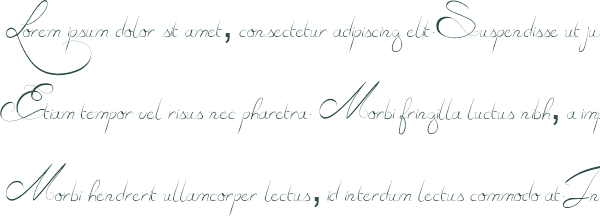 Lorem ipsum dolor sit amet, consectetur adipiscing elit. Suspendisse ut
Etiam tempor vel risus nec pharetra. Morbi fringilla luctus nibh, a
Morbi hendrerit ullamcorper lectus, id interdum lectus commodo at. In